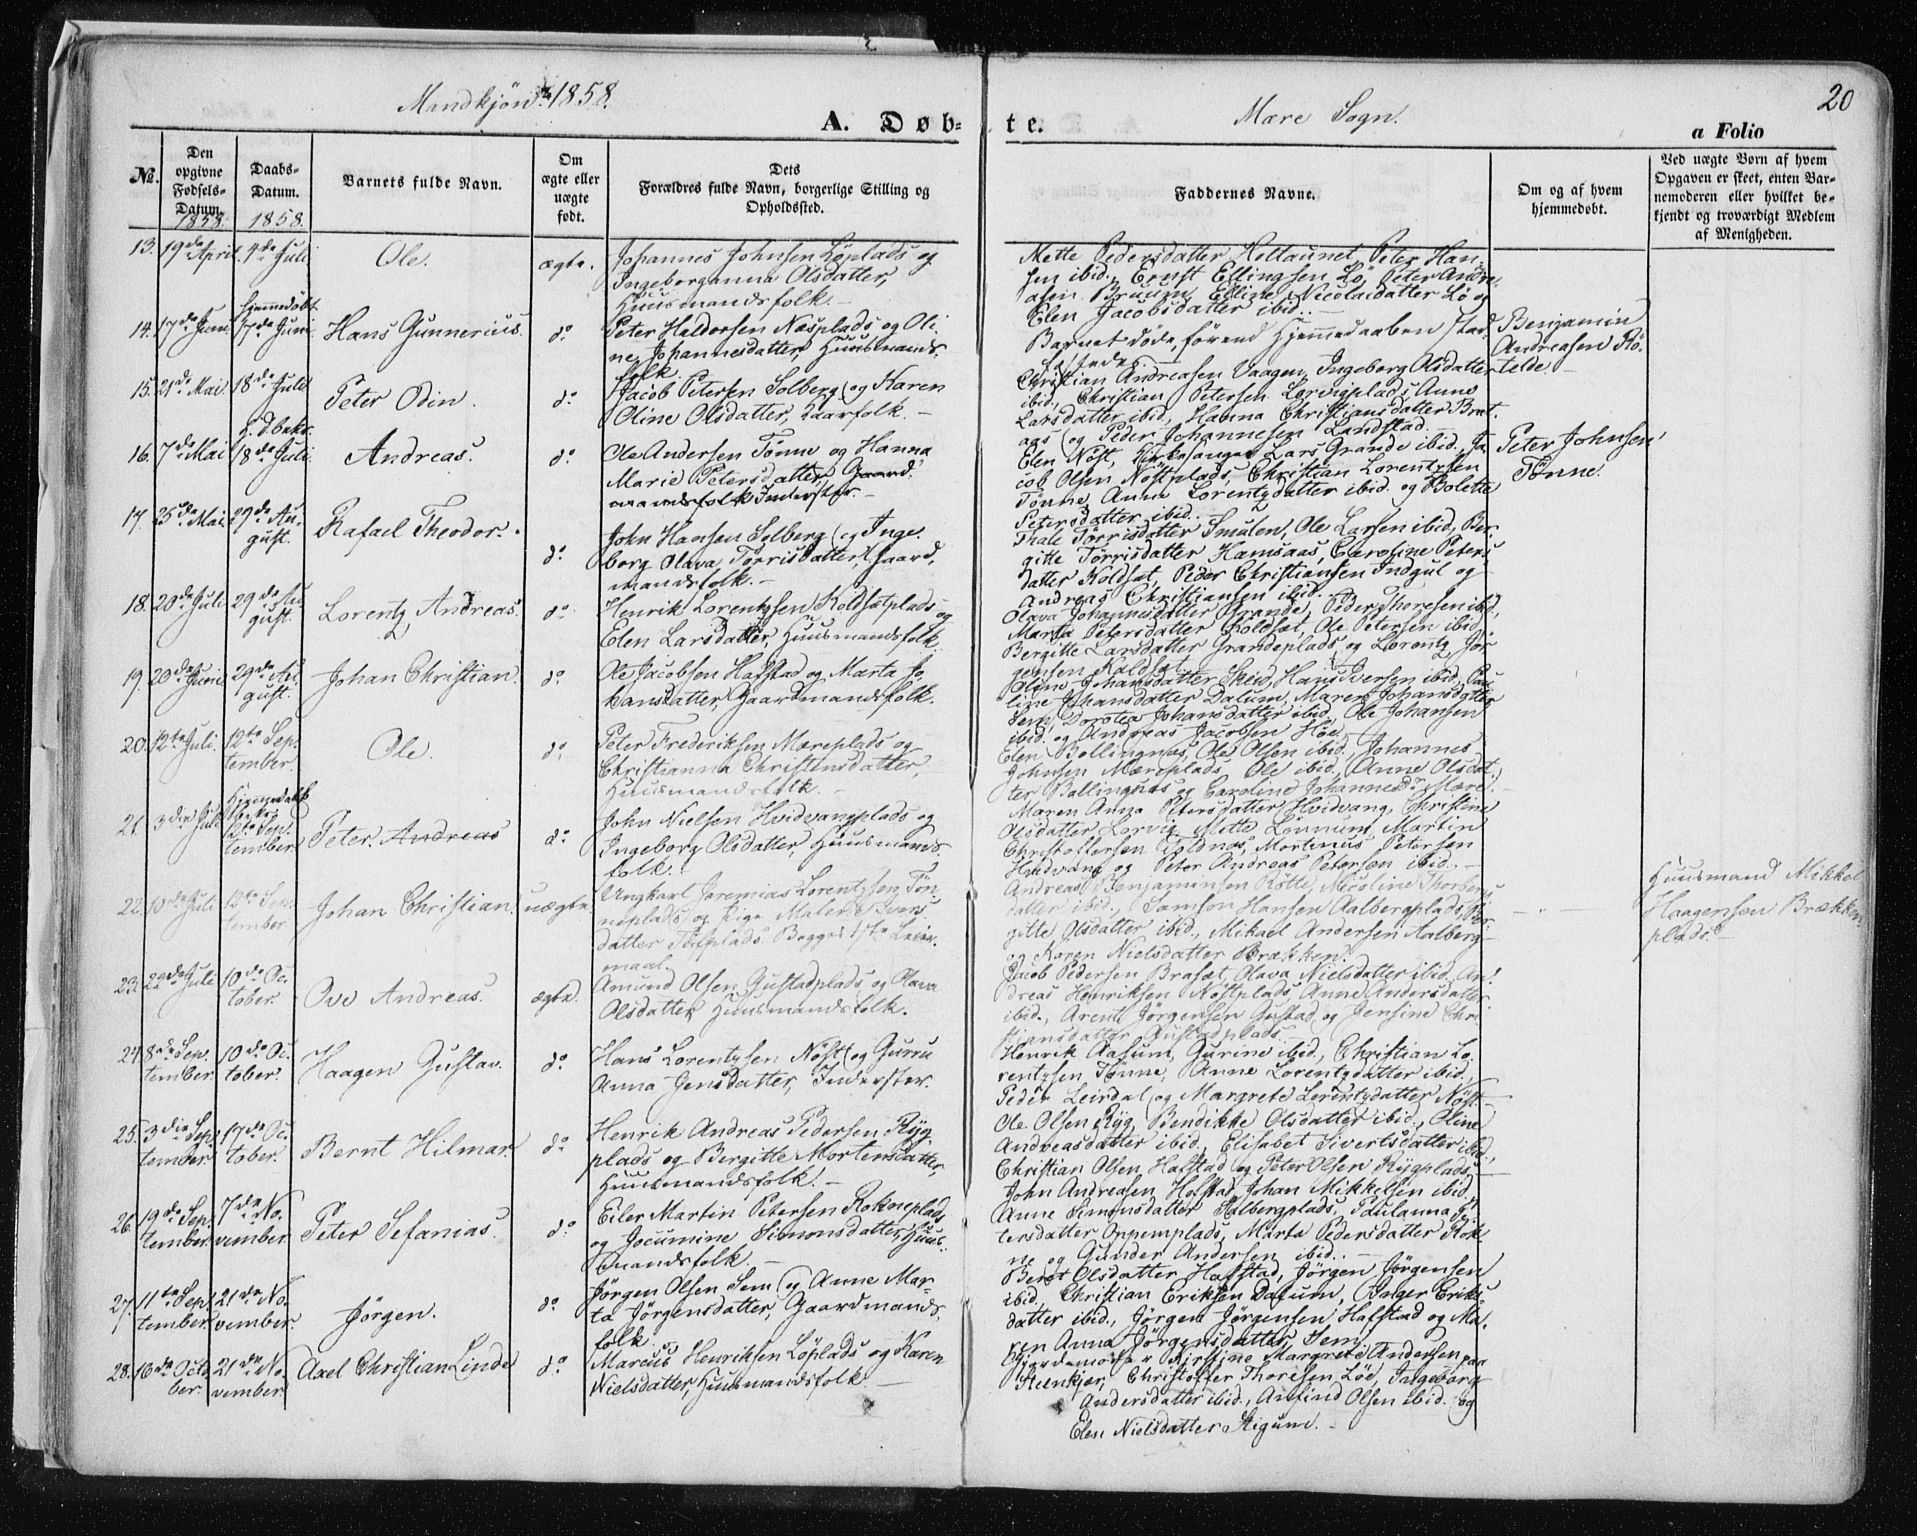 Mandkjön 1858.
Mære Sogn.
20
A. Døb-
te.
a Folio
No.
Den opgivne Fødsels-Datum.
1858.
Daabs-Datum.
1858.
Barnets fulde Navn.
Om ægte eller uægte født.
Dets
Forældres fulde Navn, borgerlige Stilling og
Opholdssted.
Faddernes Navne.
Om og af hvem
hjemmedøbt.
Ved uægte Børn af hvem
Opgaven er skeet, enten Bar-
nemoderen eller hvilket be-
kjendt og troværdigt Medlem
af Menigheden.
13. 19de April. 4de Juli
Ole.
ægte.
Johannes Johnsen Löplads og
Ingeborganna Olsdatter,
Huusmandsfolk. -
Mette Pedersdatter Hettaunet, Peter Han-
sen ibid., Ernst Ellingsen Lö, Peter Andre-
asen Bruum, Elline Nicolaidatter Lö og
Elen Jacobsdatter ibid.. -
14. 17de Juni. Hjemmedöbt 17de Juni
Hans Gunnerius.
do
Peter Haldorsen Næsplads og Oli-
ne Johannesdatter, Huusmands-
folk.
Barnet döde, förend Hjemmedaaben stad-
fæstedes. -
Benjamin
Andreasen Rö-
telde. -
15. 21de Mai 18de Juli
Peter Odin.
do
Jacob Petersen Solberg og Karen
Oline Olsdatter, Kaarfolk. -
Christian Andreasen Vaagen, Ingeborg Olsdatter
ibid., Christian Petersen Lorvigplads, Anne
Larsdatter ibid., Hanna Christiansdatter Brat-
aas og Peder Johannesen Landstad.
16. 7de Mai 18de Juli.
Andreas.
do
Ole Andersen Tönne og Hanna
Marie Petersdatter, Gaard-
mandsfolk Inderster. -
Elen Nöst, Kirkesanger Lars Grande ibid., Ja-
cob Olsen Nöstplads, Christian Lorentzsen
Tönne, Anne Lorentzdatter ibid. og Bolette
Petersdatter ibid..
Peter Johnsen
Tönne.
17. 25de Mai. 29de Au-
gust.
Rafael Theodor.
do
John Hansen Solberg og Inge-
borg Olava Törrisdatter, Gaard-
mandsfolk. -
Thale Törrisdatter Smulen, Ole Larsen ibid., Ber-
gitte Törrisdatter Hamsaas, Caroline Peters-
datter Koldsæt, Peder Christiansen Indgul og
Andreas Christiansen ibid.
18. 20de Juli 29de Au-
gust.
Lorentz Andreas.
do
Henrik Lorentzsen Koldsætplads og
Elen Larsdatter, Huusmandsfolk
Olava Johannesdatter Grande, Peder Thoresen ibid.,
Marta Petersdatter Koldsæt, Ole Petersen ibid.
Bergitte Larsdatter Grandeplads og Lorentz Jör-
gensen Koldsæt.
19. 20de Juni. 29de Au-
gust.
Johan Christian.
do
Ole Jacobsen Hafstad og Marta Jo-
hansdatter, Gaardmandsfolk.
Oline Johansdatter Skei, Hans Iversen ibid., Pau-
line Johansdatter Dalum, Maren Johansdatter
Sem, Dorotea Johansdatter ibid., Ole Johansen
ibid. og Andreas Jacobsen Höe.
20. 12te Juli. 12te Sep-
tember.
Ole.
do
Peter Frederiksen Mæreplads og
Christianna Christensdatter,
Huusmandsfolk. -
Elen Bollingnæs, Ole Olsen ibid., Johannes
Johnsen Mæreplads, Ole ibid., Anne Olsdat-
ter Ballingnæs og Caroline Johannesdr. Mære. -
21. 3die Juli 12te Sep-
tember.
Peter Andreas
do
John Nielsen Hvidvangplads og
Ingeborg Olsdatter, Huusmands-
folk. -
Maren Anna Petersdatter Hvidvang, Christine
Olsdatter Lorvig, Mette Lönnum, Martin
Christoffersen Foldnæs, Mortinus Petersen
Hvidvang og Peter Andreas Petersen ibid.. -
22. 10de Juli 12te Sep-
tember
Johan Christian.
uægte.
Ungkarl Jeremias Lorentzsen Tön-
neplads og Pige Malene Svens-
datter Tufplads. Begges 1ste Leier-
maal.
Andreas Benjaminsen Rötte, Nicoline Thorbens-
datter ibid., Samson Hansen Aalbergplads, Ber-
gitte Olsdatter ibid., Mikael Andersen Aalberg-
og Karen Nielsdatter Brækken.
Huusmand Mikkel
Haagensen Brækken-
plads. -
23. 22de Juli 10de Oc-
tober.
Ove Andreas.
ægte.
Amund Olsen Gustadplads, og Olava
Olsdatter, Huusmandsfolk.
Jacob Pedersen Brasæt, Olava Nielsdatter ibid. An-
dreas Henriksen Nöstplads, Anne Andersdatter
ibid., Arent Jörgensen Gustad og Jensine Chri-
stiansdatter Gustadplads.
24. 8de Sep-
tember. 10de Oc-
tober.
Haagen Gustav.
do
Hans Lorentzsen Nöst og Gurru
Anna Jensdatter, Inderster.
Henrik Aasum, Gurine ibid., Christian Lo-
rentzsen Tönne, Anne Lorentzdatter ibid.,
Peder Leirdal og Margrete Lorentzdatter Nöst. -
25. 3die Sep-
tember. 17de Oc-
tober.
Bernt Hilmar
do
Henrik Andreas Pedersen Ryg-
plads og Bergitte Mortensdatter,
Huusmandsfolk. -
Ole Olsen Ryg, Bendikke Olsdatter ibid., Oline
Andreasdatter ibid., Elisabet Sivertsdatter ibid.,
Christian Olsen Hafstad og Peter Olsen Rygplads. -
26. 19de Sep-
tember. 7de No-
vember
Peter Sefanias.
do
Eiler Martin Petersen Rokneplads
og Jocumine Simonsdatter, Huus-
mandsfolk. -
John Andreasen Hofstad, Johan Mikkelsen ibid.,
Anne Simonsdatter Halbergplads, Paulanna Pe-
tersdatter Oppemplads, Marta Pedersdatter Rok-
ne og Gunder Andersen ibid.. -
27. 11te Sep-
tember. 21de No-
vember.
Jörgen.
do
Jörgen Olsen Sem og Anne Mar-
ta Jörgensdatter, Gaardmands-
folk.
Beret Olsdatter Hafstad, Jörgen Jörgensen
ibid., Christian Eriksen Dalum, Inger Eriks-
datter ibid., Jörgen Jörgensen Hafstad og Ma-
ren Anna Jörgensdatter Sem.
28. 16de Octo-
ber. 21de No-
vember
Axel Christian Linde
do
Marcus Henriksen Löplads og Karen
Nielsdatter, Huusmandsfolk. -
Gjordemoder Kirstine Margrete Andersen paa
Steenkjær, Christoffer Thoresen Löe, Ingeborg
Andersdatter ibid., Anfind Olsen ibid. og
Elen Nielsdatter Stigum. -